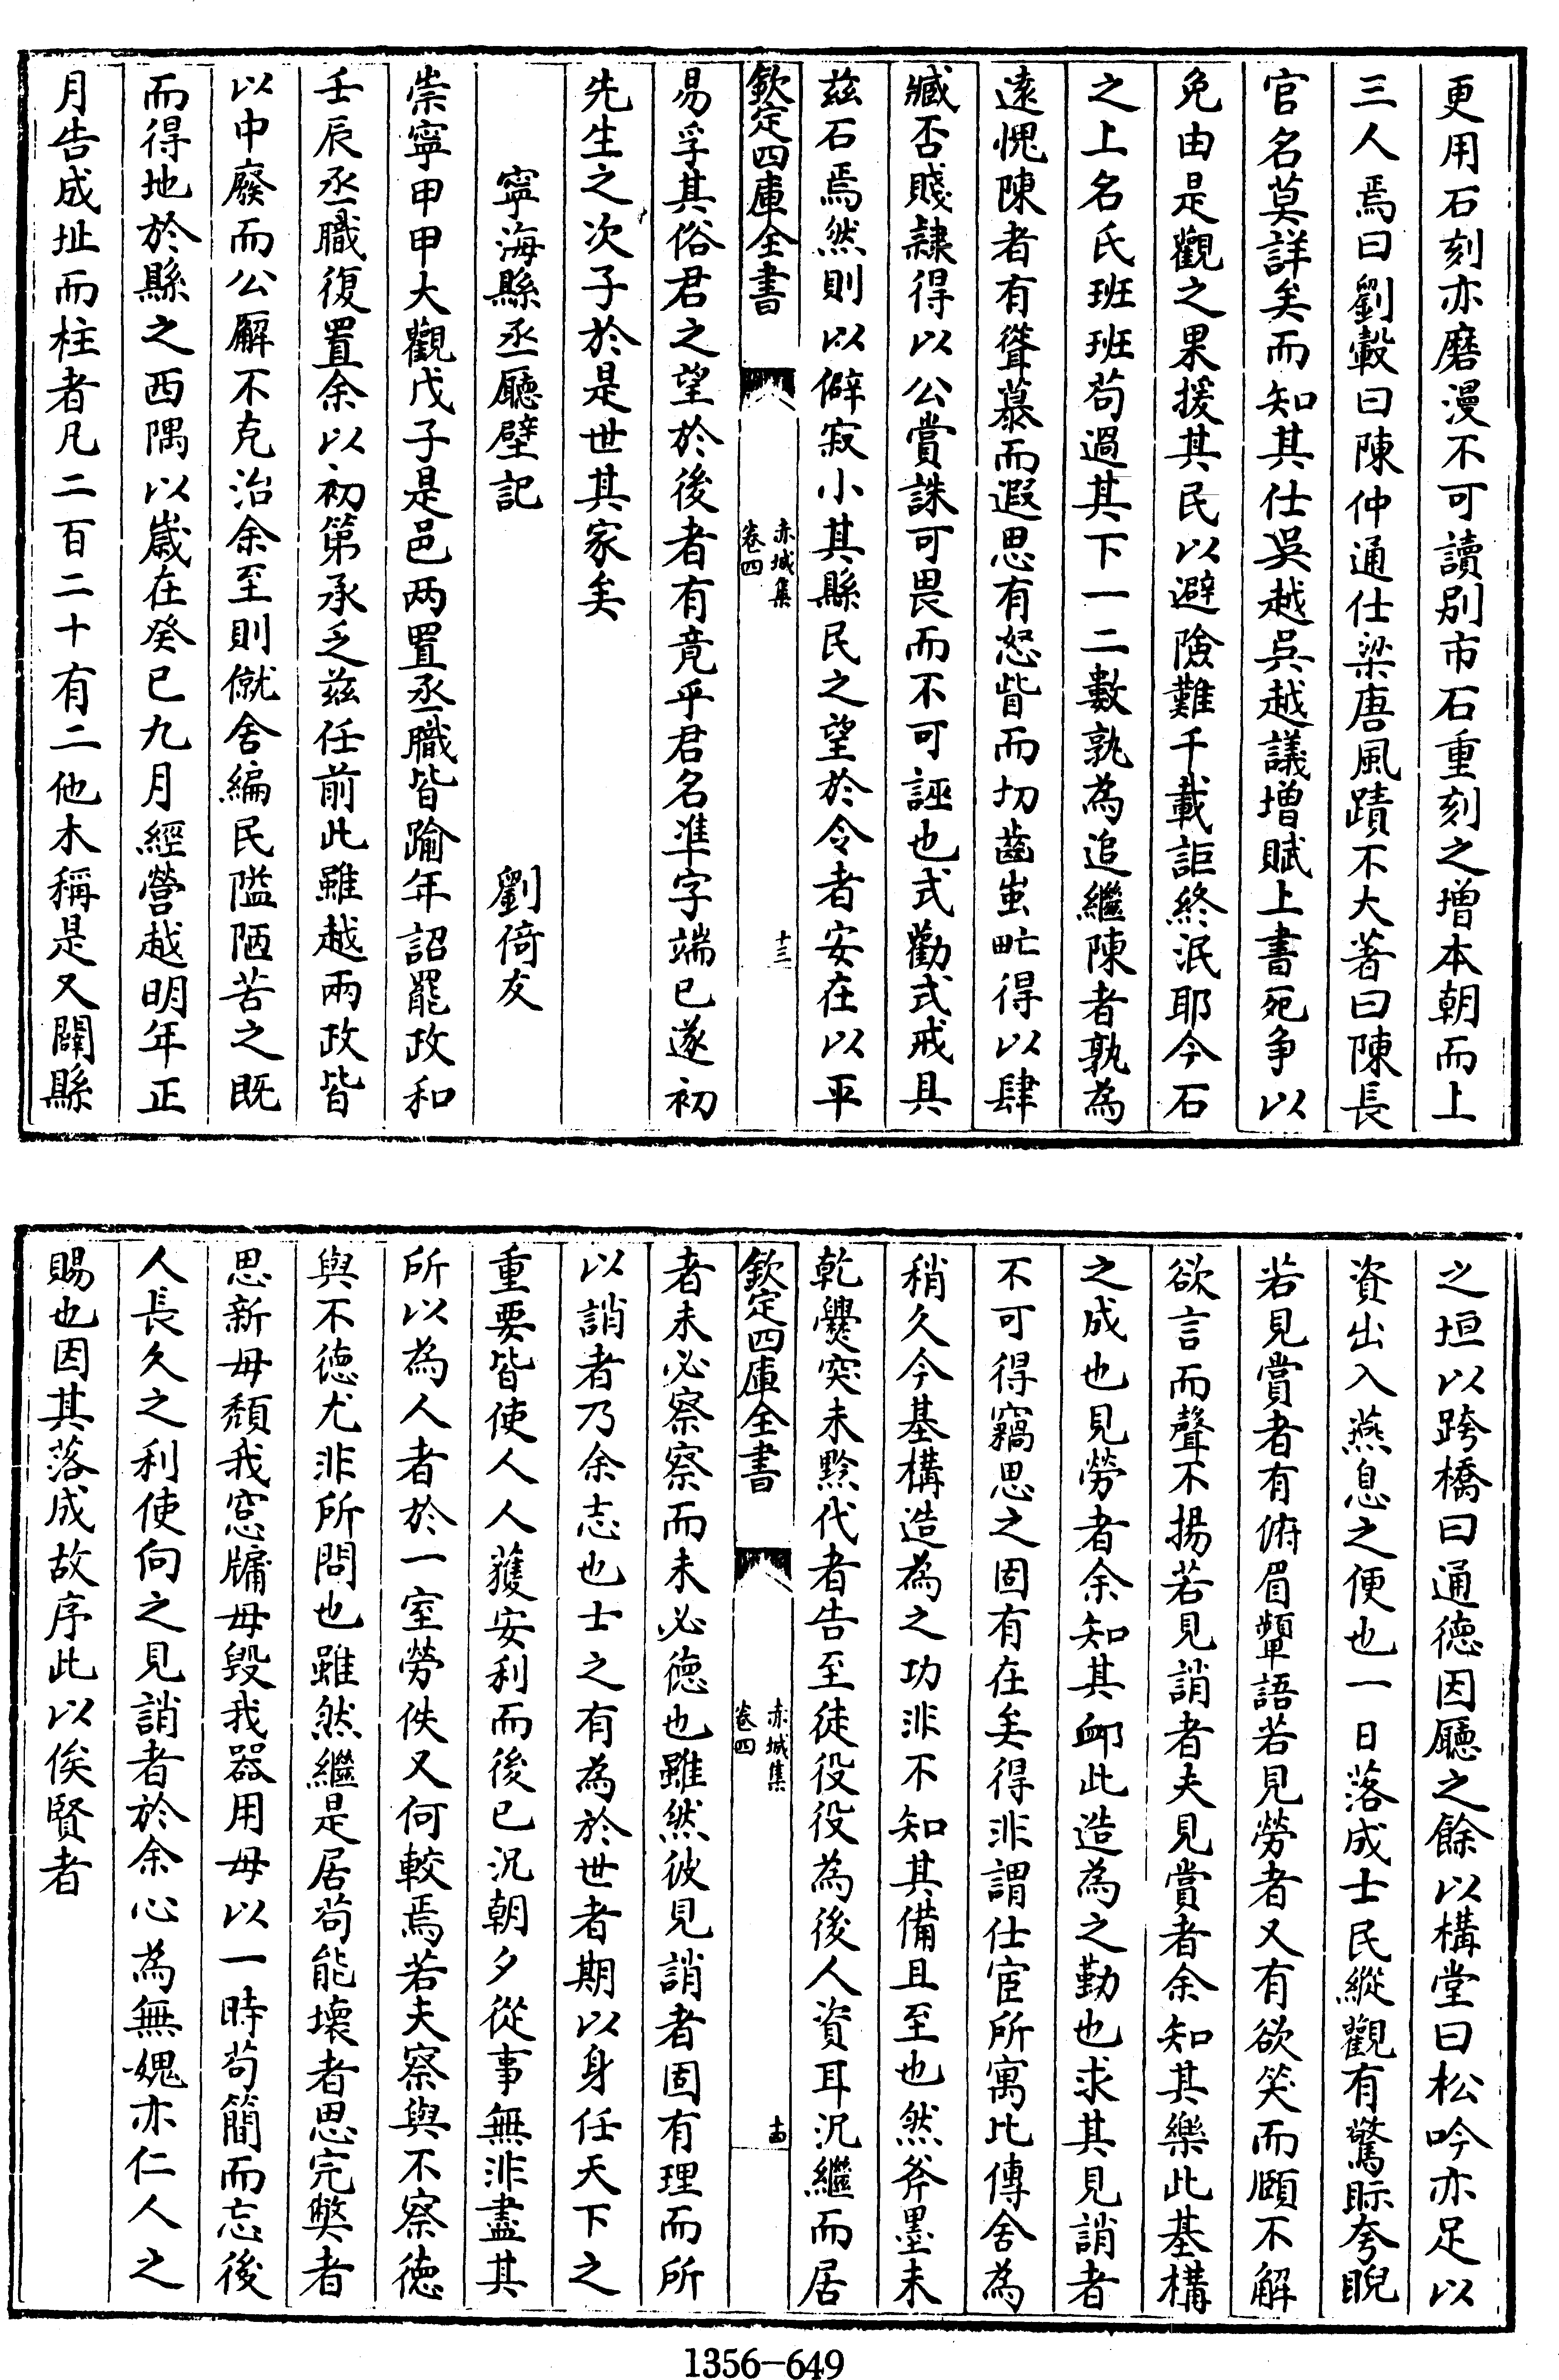 更用石刻亦磨漫不可讀别市石重刻之增本朝而上
三人焉曰劉轂曰陳仲通仕梁唐風蹟不大著曰陳長
官名莫詳矣而知其仕吳越吳越議增賦上書死争以
免由是觀之果援其民以避險難千載詎終泯耶今石
之上名氏班班苟過其下一二數孰為追繼陳者孰為
遠愧陳者有聳慕而遐思有怒眥而切齒蚩甿得以肆
臧否賤隸得以公賞誅可畏而不可誣也式勸式戒具
兹石焉然則以僻寂小其縣民之望於令者安在以平
欽定四庫全書
赤城集
卷四
十三
易孚其俗君之望於後者有竟乎君名準字端已遂初
先生之次子於是世其家矣
寧海縣丞廳壁記
劉倚友
崇寧甲申大觀戊子是邑两置丞職皆踰年詔罷政和
壬辰丞職復置余以初第承乏兹任前此雖越兩政皆
以中廢而公廨不克治余至則僦舍編民隘陋苦之既
而得地於縣之西隅以嵗在癸巳九月經營越明年正
月告成址而柱者凡二百二十有二他木稱是又闢縣
之垣以跨橋曰通徳因廳之餘以構堂曰松吟亦足以
資出入燕息之便也一日落成士民縱觀有驚眎夸睨
若見賞者有俯眉顰語若見勞者又有欲笑而頤不解
欲言而聲不揚若見誚者夫見賞者余知其樂此基構
之成也見勞者余知其卹此造為之勤也求其見誚者
不可得竊思之固有在矣得非謂仕宦所寓比傳舍為
稍久今基構造為之功非不知其備且至也然斧墨未
乾㸑突未黔代者告至徒役役為後人資耳况繼而居
欽定四庫全書
赤城集
卷四
十四
者未必察察而未必徳也雖然彼見誚者固有理而所
以誚者乃余志也士之有為於世者期以身任天下之
重要皆使人人獲安利而後已况朝夕從事無非盡其
所以為人者於一室勞佚又何較焉若夫察與不察徳
與不徳尤非所問也雖然繼是居苟能壞者思完弊者
思新毋頽我窓牖毋毀我器用毋以一時苟簡而忘後
人長久之利使向之見誚者於余心為無媿亦仁人之
賜也因其落成故序此以俟賢者
1356-649